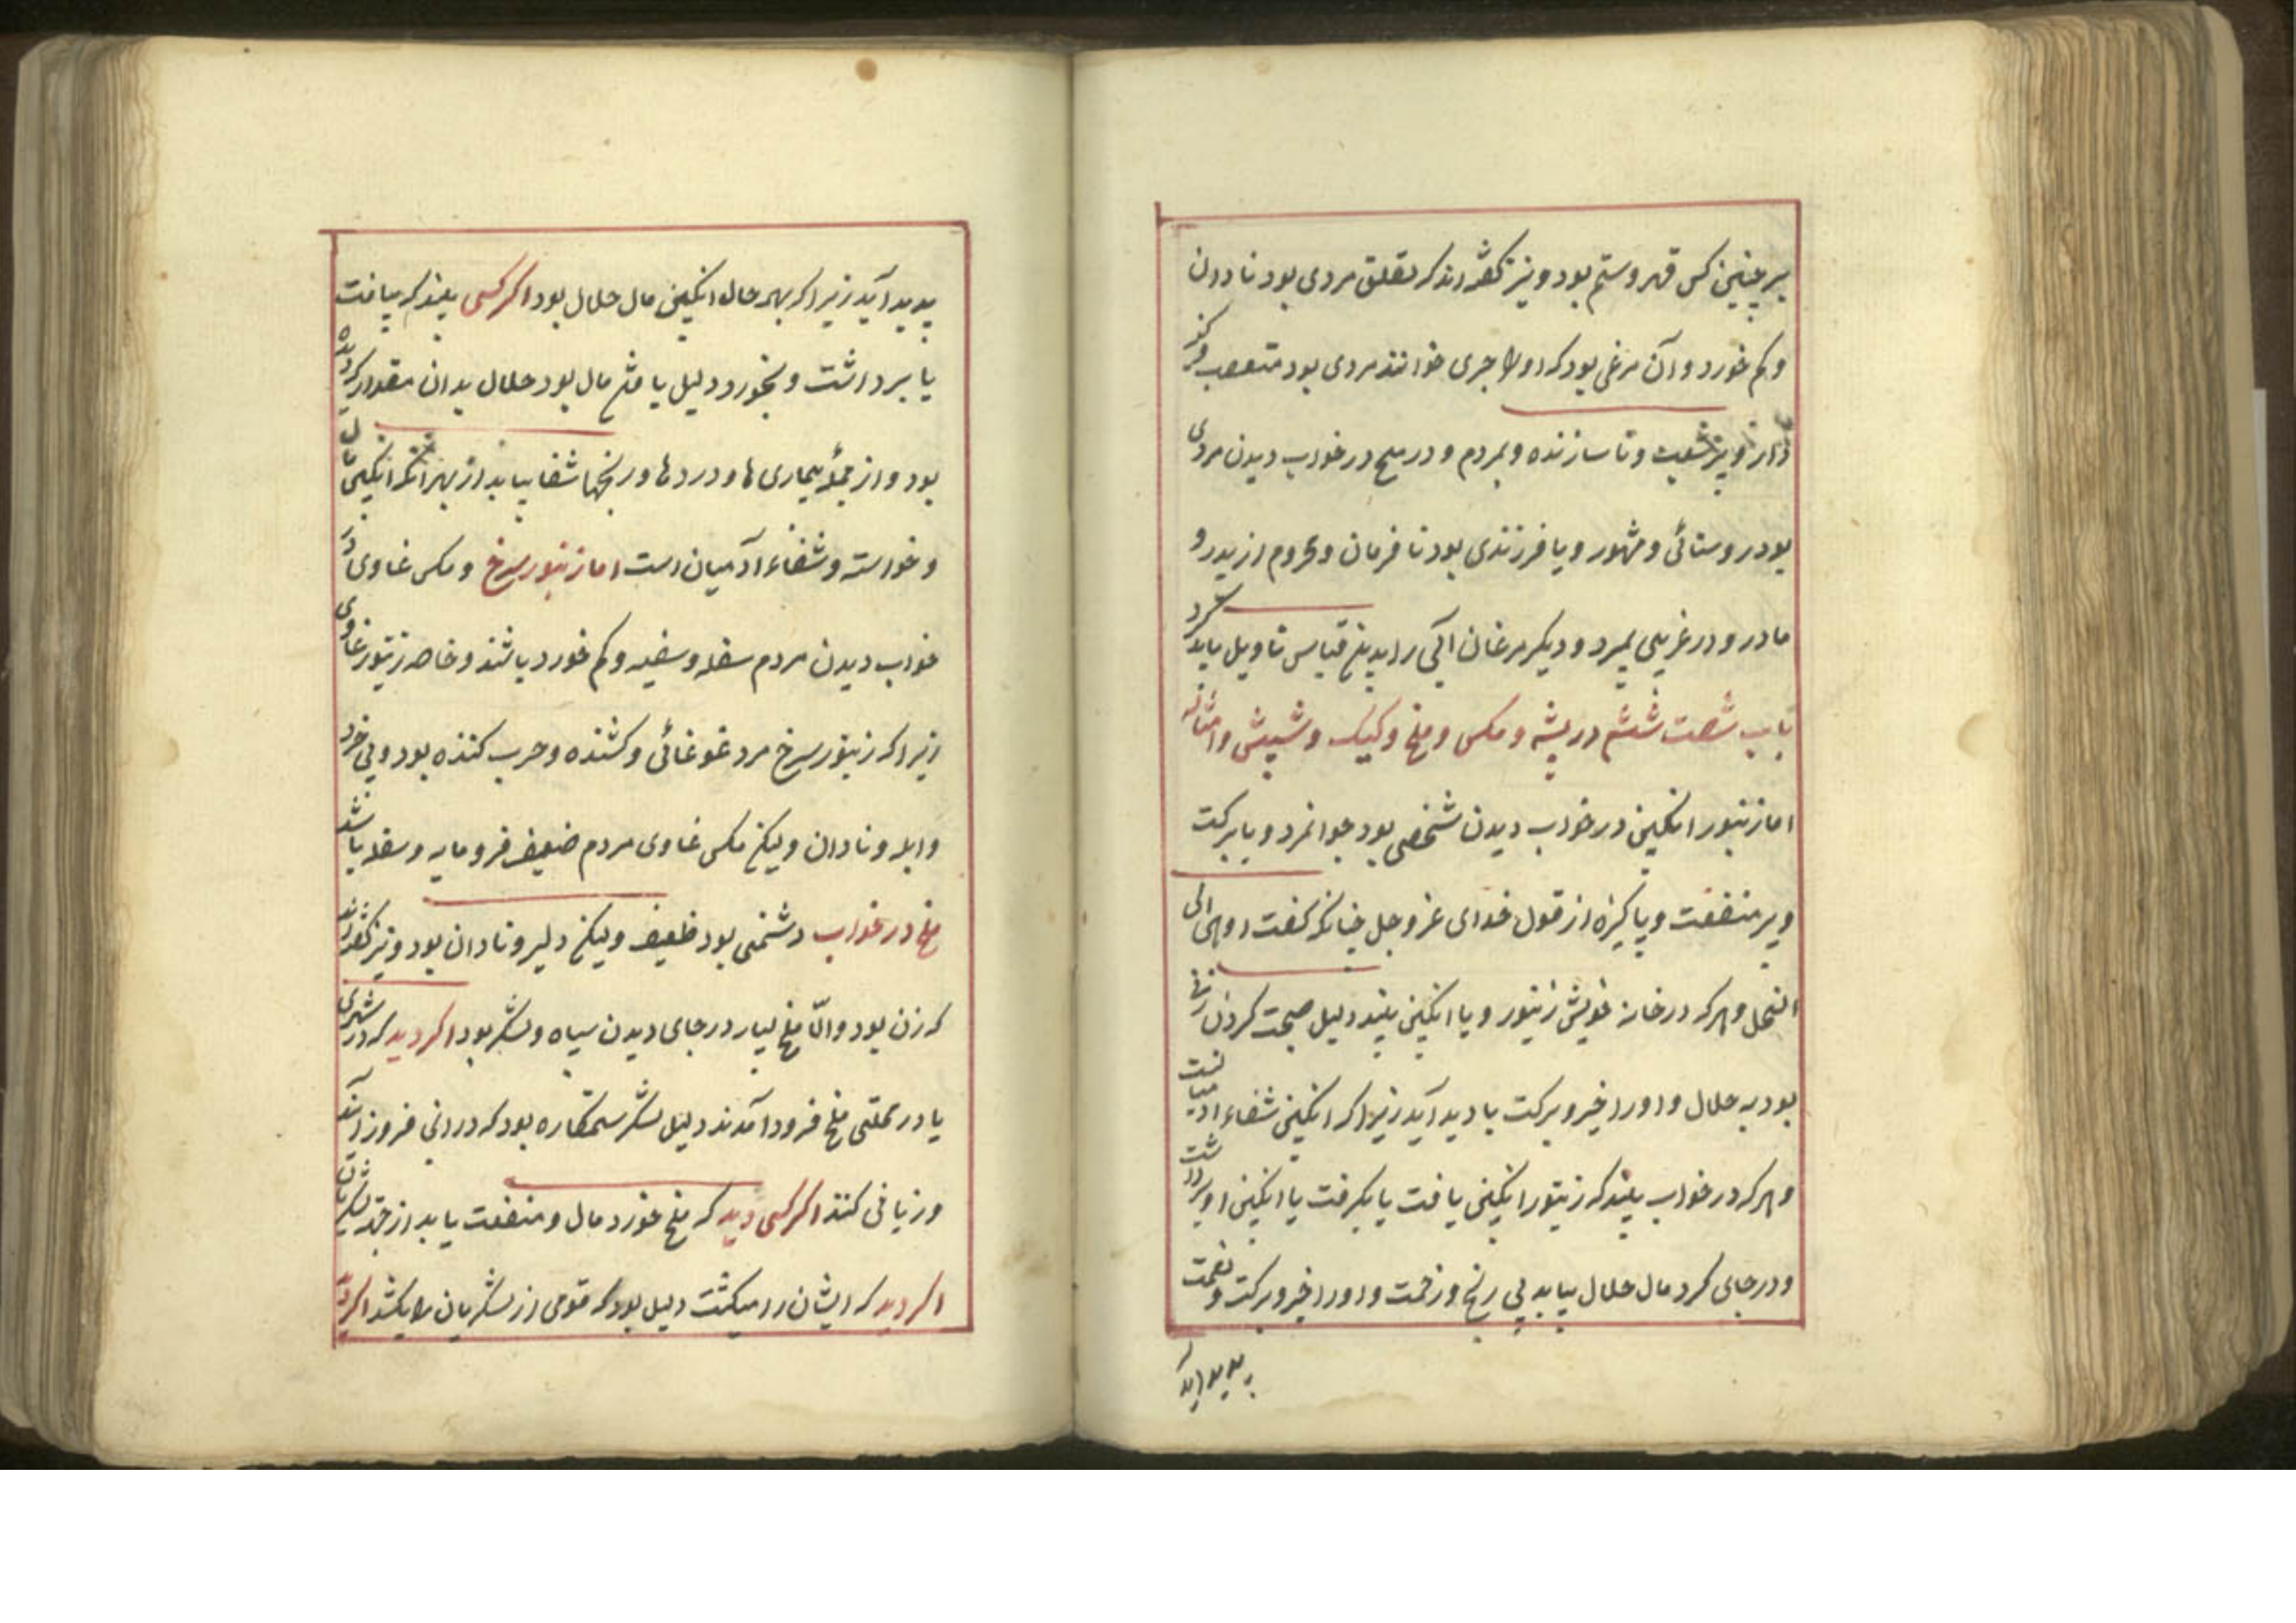 بر چنین کس قهر و ستم بود و نیز کفته اند که تقلق مردی بود نادان
و کم خورد و آن مرغی بود که او را جری خوانند مردی بود متعصب
و ناسازنده و بمردم و در ملح در خواب دیدن مردی
بود روستائی و مشهور و یا فرزندی بود نافرمان و محروم از پدر و
مادر و در غریبی بمیرد و دیکر مرغان آبی را بدینخ قیاس تاویل باید کرد
باب شصت ششم در پشه و مکس و ملخ و کیک و شپش و امثاله
اما زنبور انکبین در خواب دیدن شخصی بود جوانمرد و بابرکت
و پر منفعت و پاکیزه از قول خدای عز و جل چنانکه کفت اوحی الی
النحل و هر که در خانه خویش زنبور و یا انکبین بیند دلیل صحبت کردن زنی
بود به حلال و او را خیر و برکت بادید آید زیرا که انکبین شفاء ادمیانست
و هر که در خواب بیند که زنبور انکبین یافت یا بکرفت یا انکبین او برداشت
و در جای کرد مال حلال بیابد بی رنج و زحمت و او را خیر و برکت و نعمت
پدید آید
پدید آید زیرا که بهر حال انکبین مال حلال بود اکر کسی بیند که بیافت
یا برداشت و بخورد دلیل یافتن مال بود حلال بدان مقدار که دیده
بود و از جملۀ بیماری ها و دردها و رنجها شفا بیابد از بهر آنکه انکبین مال
و خواسته و شفاء آدمیان است اما زنبور سرخ و مکس غاوی در
خواب دیدن مردم سفله و سفیه و کم خورد باشند و خاصه زنبور غاوی
زیرا که زنبور سرخ مرد غوغائی و کشنده و حرب کننده بود و بی خرد
و ابله و نادان ولیکن مکس غاوی مردم ضعیف فرومایه و سفله باشد
ملخ در خواب دشمنی بود ضعیف ولیکن دلیر و نادان بود و نیز کفته اند
که زن بود و امّا ملخ بسیار در جای دیدن سپاه و لشکر بود اکر دید که در شهری
یا در محلتی ملخ فرود آمدند دلیل لشکر ستمکاره بود که در انجا فروز آیند
و زیانی کنند اکر کسی دید که ملخ خورد مال و منفعت یابد از جهة لشکریان
اکر دید که ایشان را میکشت دلیل بود که قومی از لشکریان را بکشد اکر دید